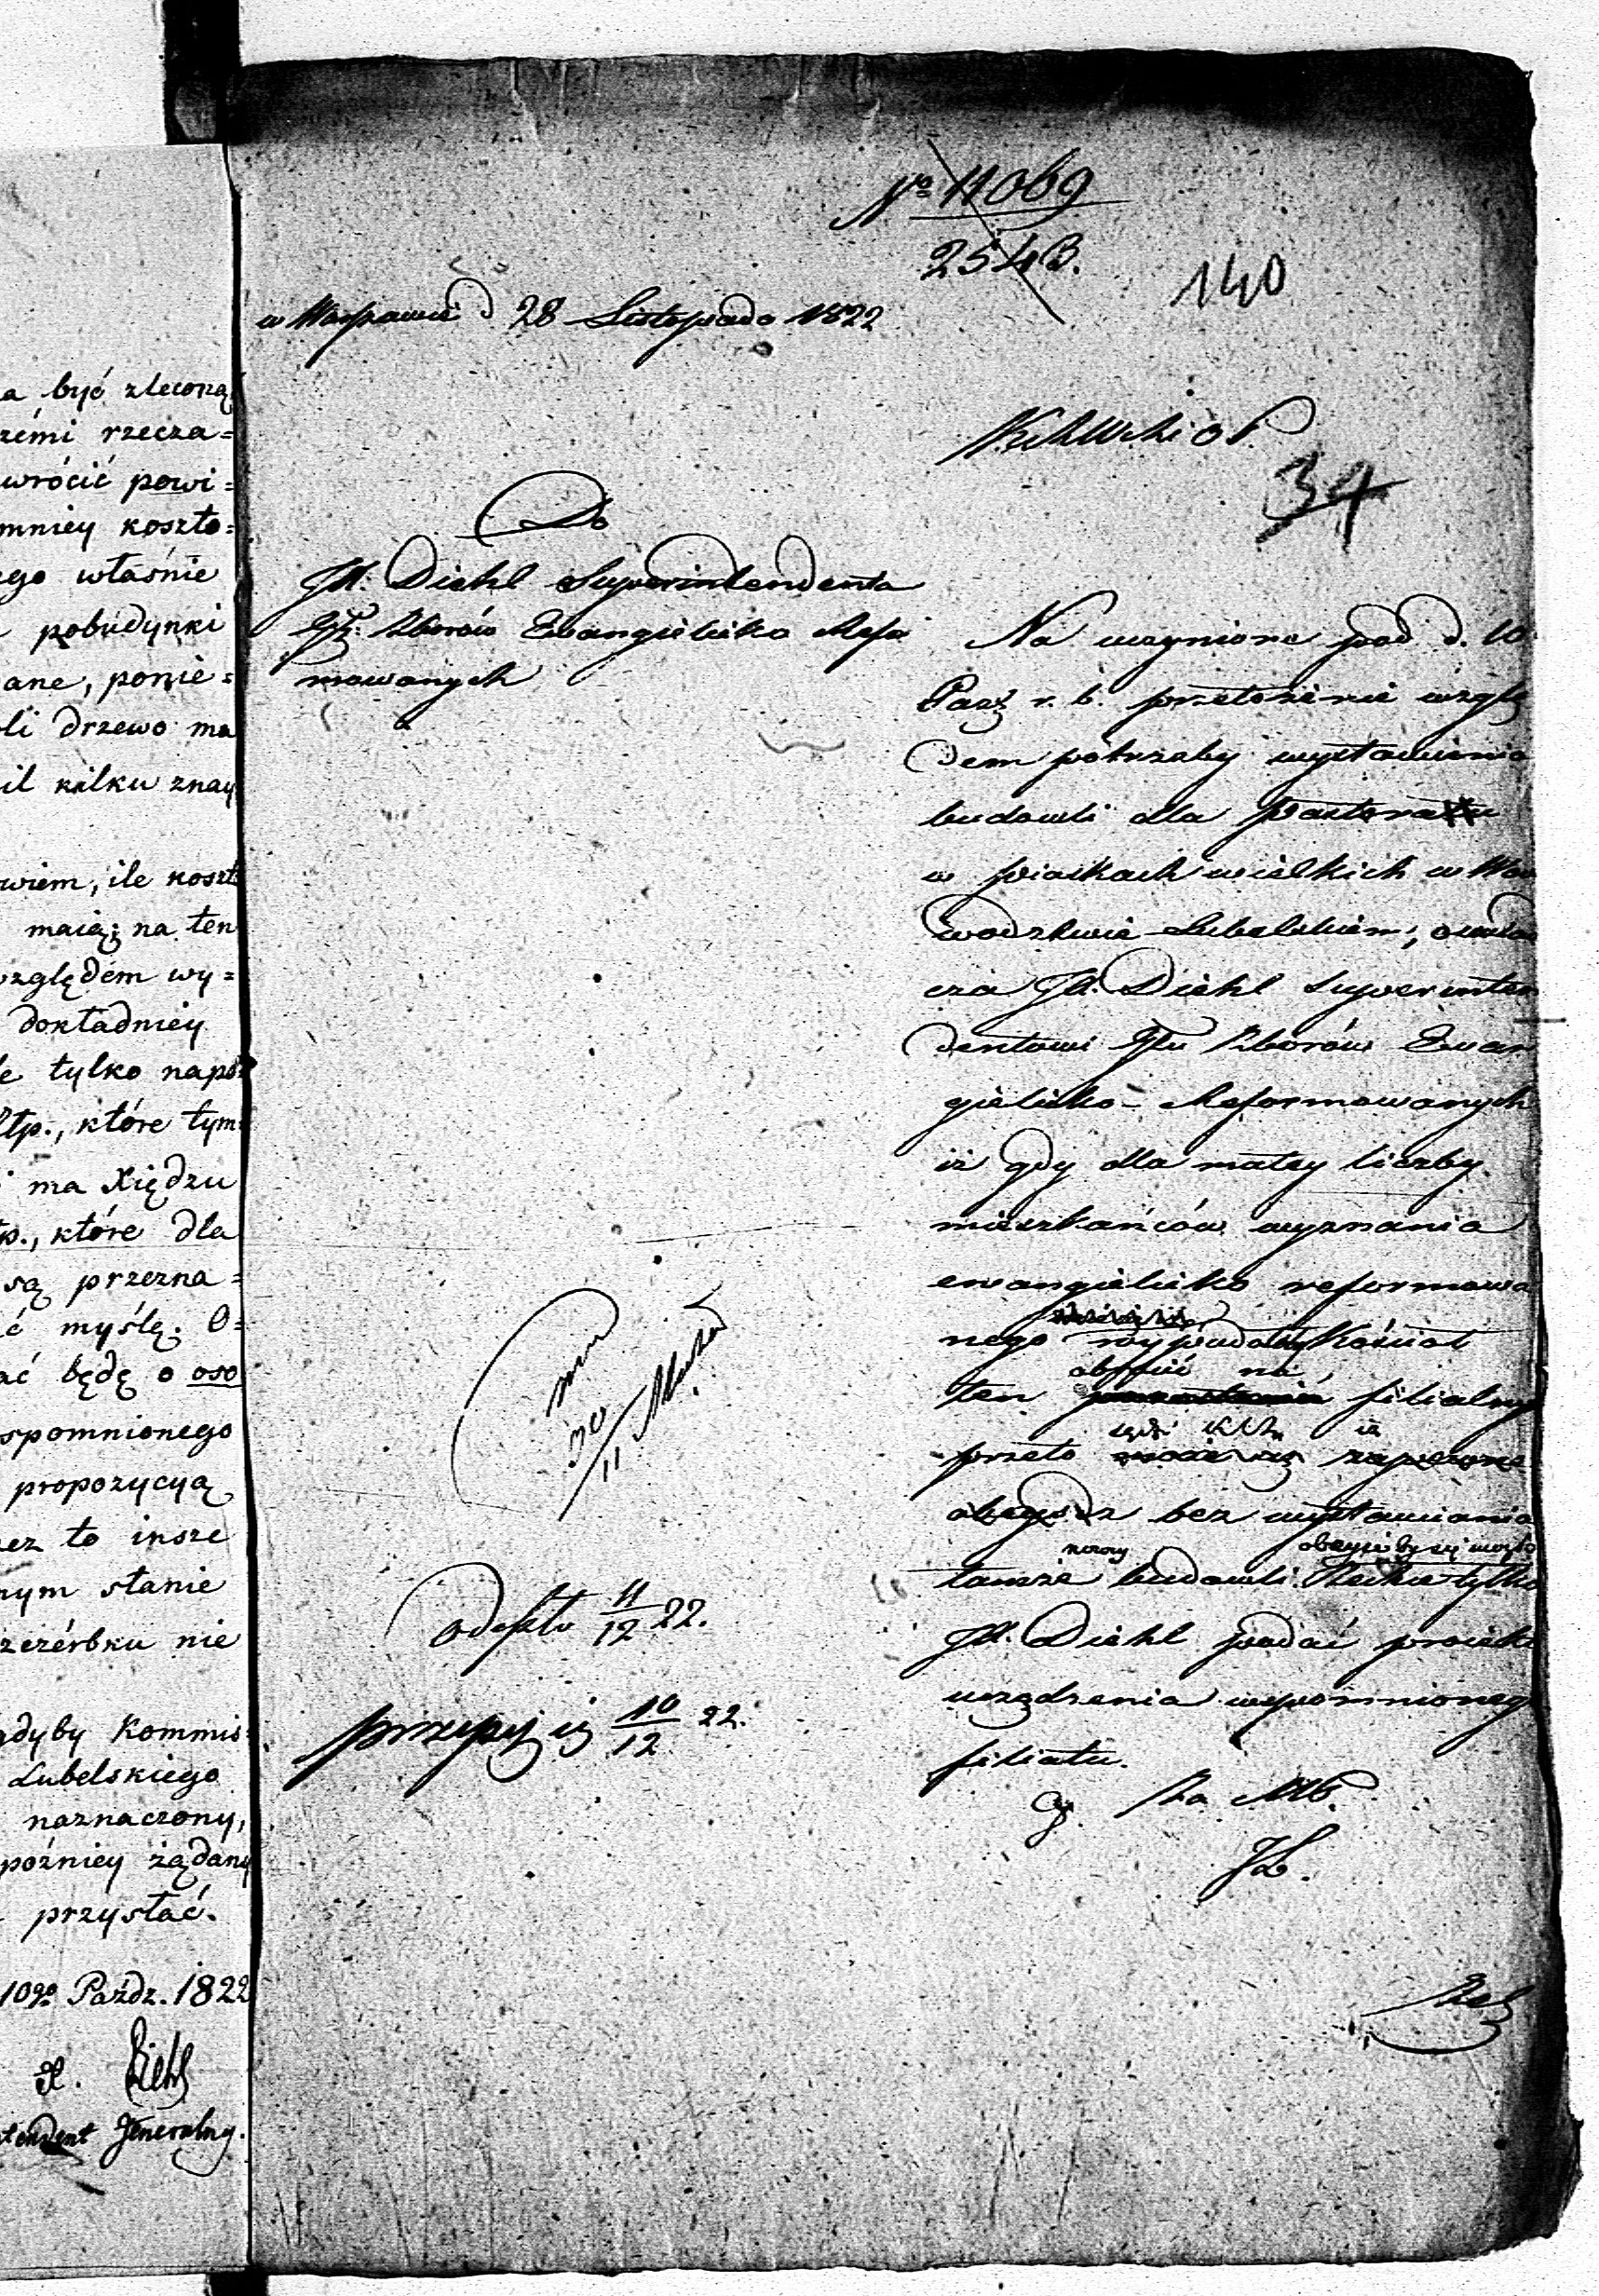 a być zleconą
zémi rzecza=
wrócić powi=
mniey koszto=
ego właśnie
pobudynki
ane, ponie=
li drzewo ma
il kilku znay
wiem, ile koszt
maią; na ten
względem wy=
dokładniey
e tylko napo
Złp., które tym
ma Xiędzu
p., które dla
są przezna=
ć myślę. O=
ać będę o oso
spomnionego
propozycyą
ez to insze
nym stanie
zczérbku nie
gdyby Kommis
Lubelskiego
naznaczony,
późniey żądany
przysłać.
10go Paźdz. 1822
X. Diehl
tendent Jeneralny.
No 11069
2543.
140
w Warszawie d 28 Listopada 1822
34
Do
JX. Diehl Superintendenta
Zborów Ewangielicko Refor
mowanych
Na uczynione pod d. 10
Paźǳ r. b. przełożenie wzglę
dem potrzeby wystawienia
budowli dla Pastoratu
w piaskach wielkich w Woie
wodztwie Lubelskiem, oświad
cza JX. Diehl Superinten
dentowi Zborów Ewan
gielicko-Reformowanych
iż gdy dla małey liczby
mieszkańców wyznania
ewangielicko reformowa
nego wypadałoby Kościół
obrócić na
ten filialny
sądzi iż
przeto
bez wystawiania
nowey obeyść by się mogło
tamże budowli. Zechce tylko
JX. Diehl podać proiekt
urządzenia wspomnionego
filiału.
Za MP.
30/11
Odeszło 11/12 22.
przepis 10/12 22.